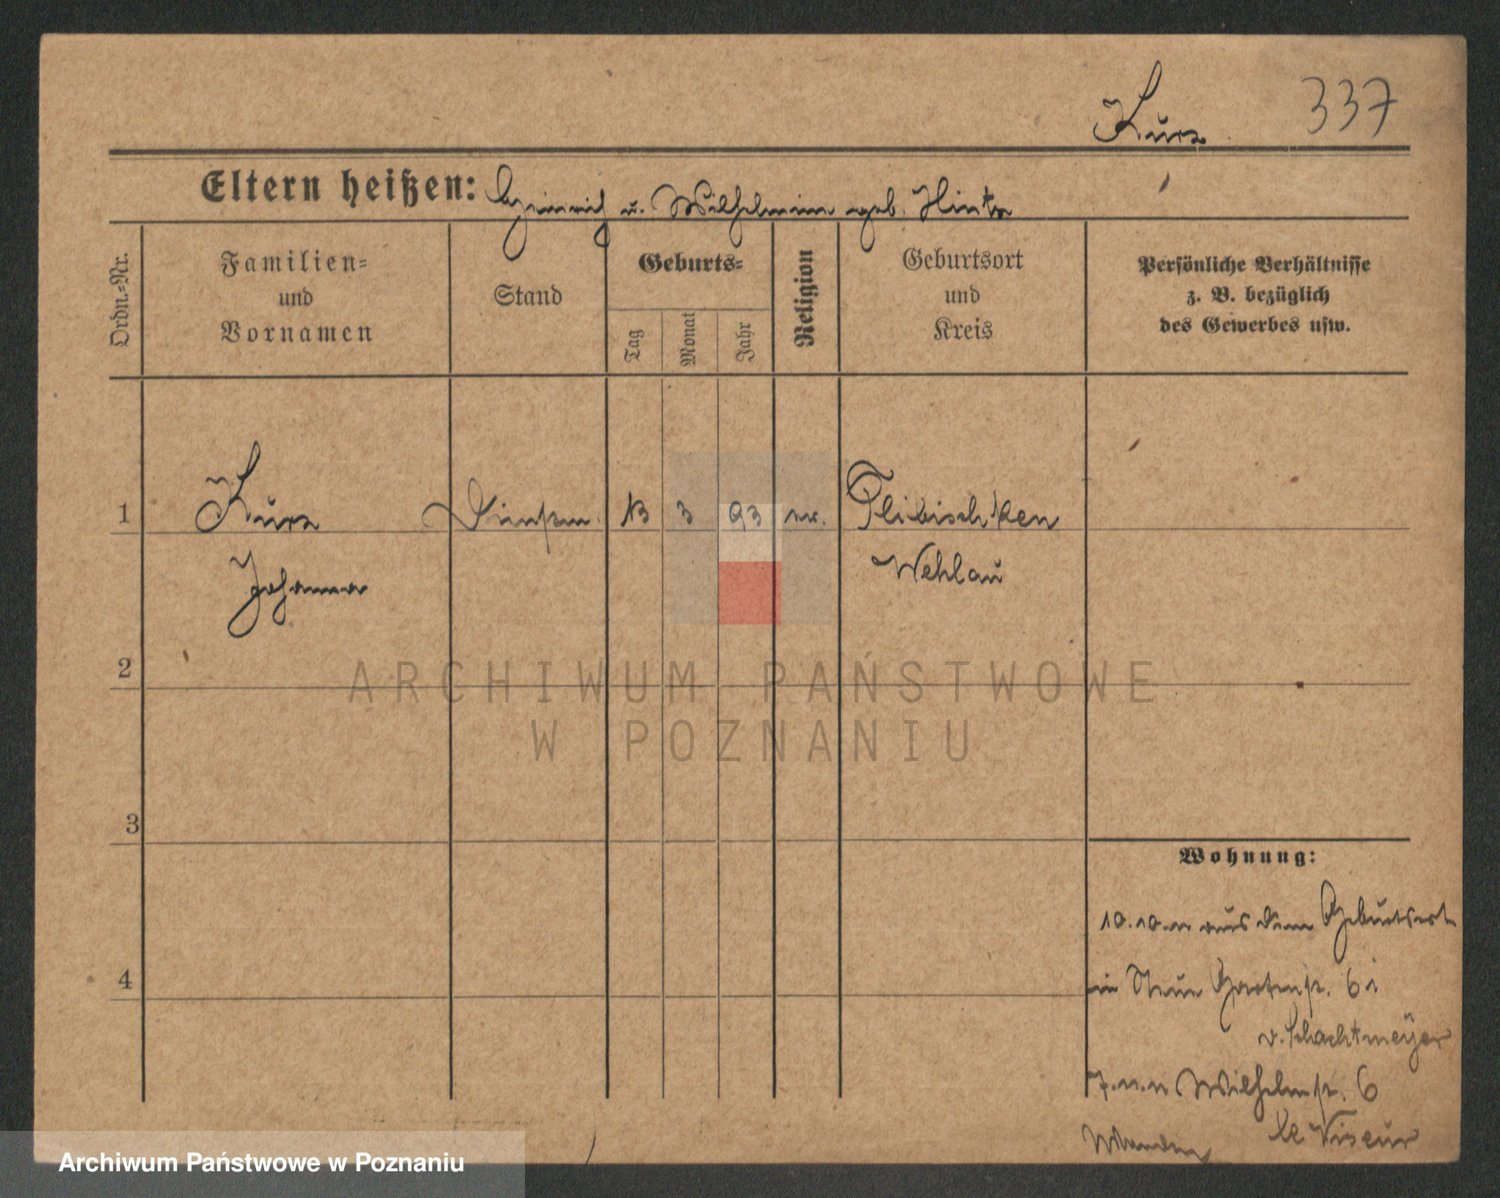 Kurz 337
Eltern heißen: Heinrich u. Wilhelmine geb. Hintz
Ordn.-Nr.
Familien-
und
Vornamen
Stand
Geburts-
Tag
Monat
Jahr
Religion
Geburtsort
und
Kreis
Persönliche Verhältnisse
z. B. bezüglich
des Gewerbes usw.
1 Kurz 3 93 Plibischken
Johanna Wehlau
2
3
4
Wohnung:
10.10.11 aus dem Geburtsort
in Neue Gartenstr. 6
v. Schachtmeyer
7.11.11 Wilhelmstr. 6
le Viseur
ARCHIWUM PAŃSTWOWE
W POZNANIU
Archiwum Państwowe w Poznaniu